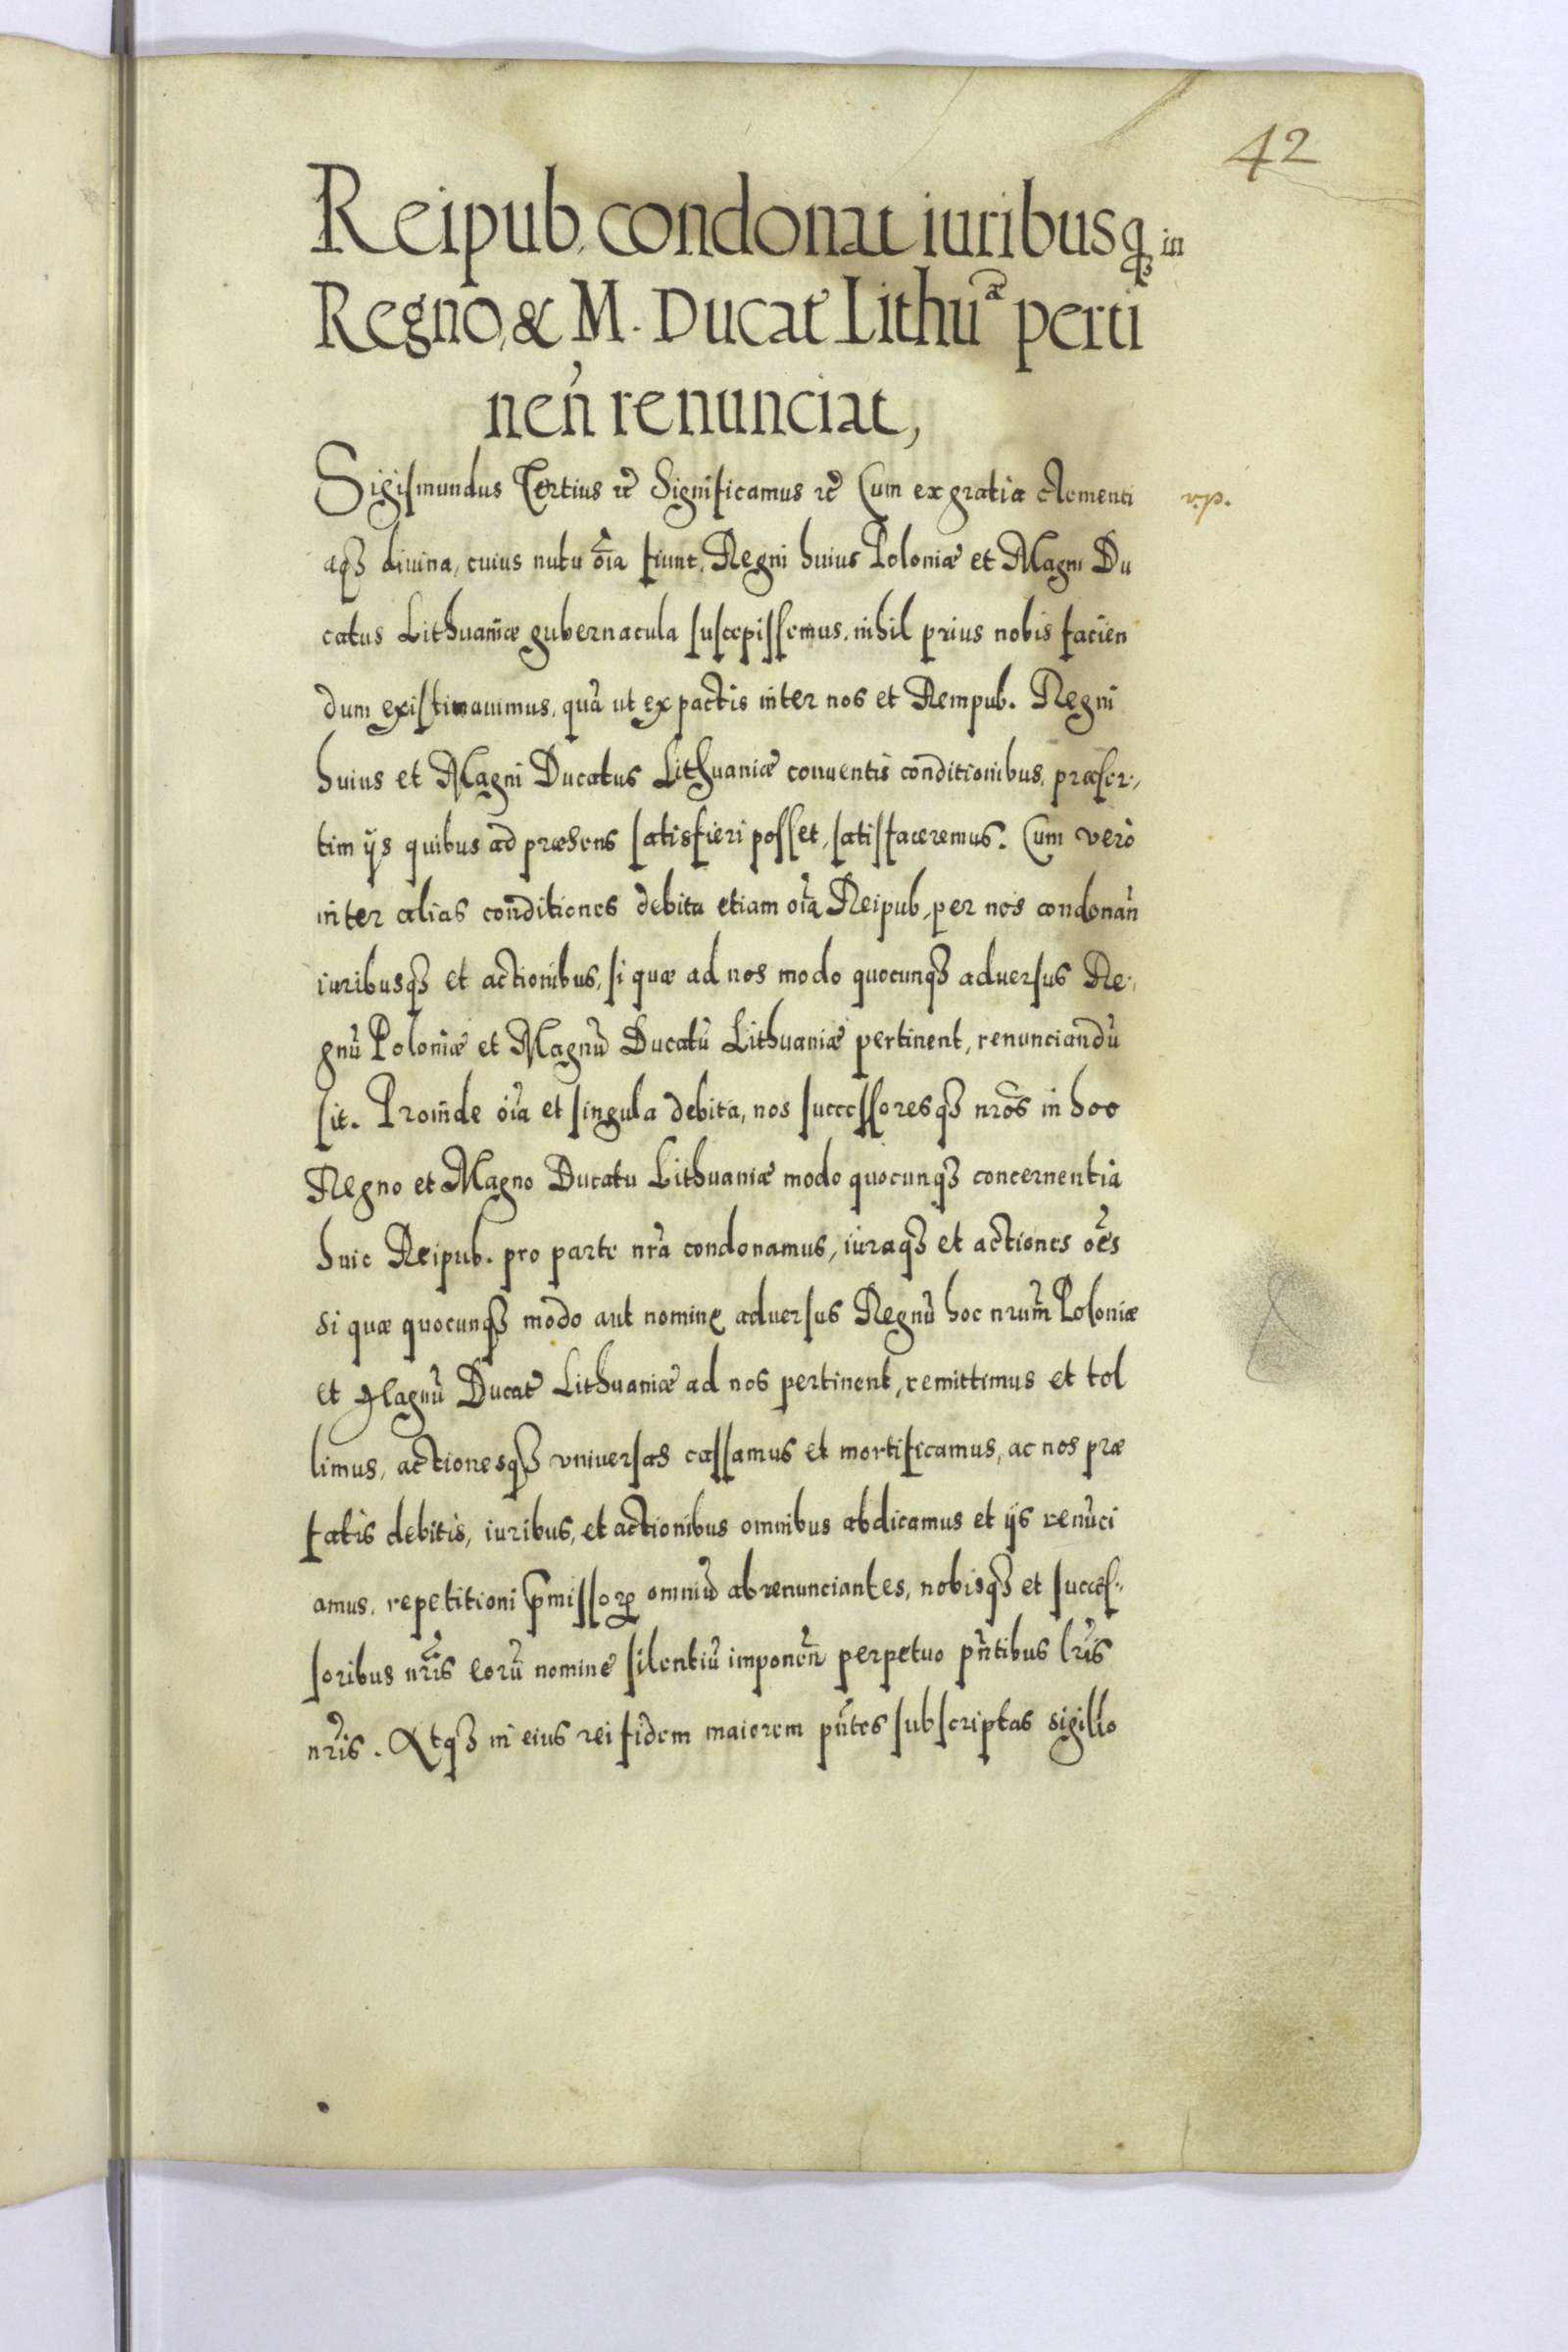 42
Reipub, condonat iuribusq3 in
Regno, & M. Ducat Lithuᵃ perti
neñ renunciat,
Sigismundus Tertius rc̃ Significamus rc̃ Cum ex gratia clementi v.p.
aq3 divina, cuius nutu oĩa fiunt, Regni huius Poloniæ et Magni Du
catus Lithuaniæ gubernacula suscepissemus, nihil prius nobis facien
dum existimauimus, quã ut ex pactis inter nos et Rempub. Regni
huius et Magni Ducatus Lithuaniæ conuentis conditionibus, præser,
tim ijs quibus ad præsens satisfieri posset, satisfaceremus. Cum verò
inter alias conditiones debita etiam oĩa Reipub, per nos condonañ
iuribusq3 et actionibus, si quæ ad nos modo quocunq3 adversus Re,
gnũ Poloniæ et Magnũ Ducatũ Lithuaniæ pertinent, renunciandũ
sit. Proinde oĩa et singula debita, nos successoresq3 nr̃os in hoc
Regno et Magno Ducatu Lithuaniæ modo quocunq3 concernentia
huic Reipub. pro parte nr̃a condonamus, iuraq3 et actiones oẽs
si quæ quocunq3 modo aut nomine aduersus Regnũ hoc nr̃um Poloniæ
et Magnũ Ducat̃ Lithuaniæ ad nos pertinent, remittimus et tol
limus, actionesq3 vniuersas cassamus et mortificamus, ac nos præ
fatis debitis, iuribus, et actionibus omnibus abdicamus et ijs renũci
amus, repetitioni p̃missoꝝ omniũ abrenunciantes, nobisq3 et succes,
soribus nr̃is eorũ nomine silentiũ imponeñ perpetuo pñtibus lr̃is
nr̃is. Atq3 in eius rei fidem maiorem pñtes subscriptas sigillo